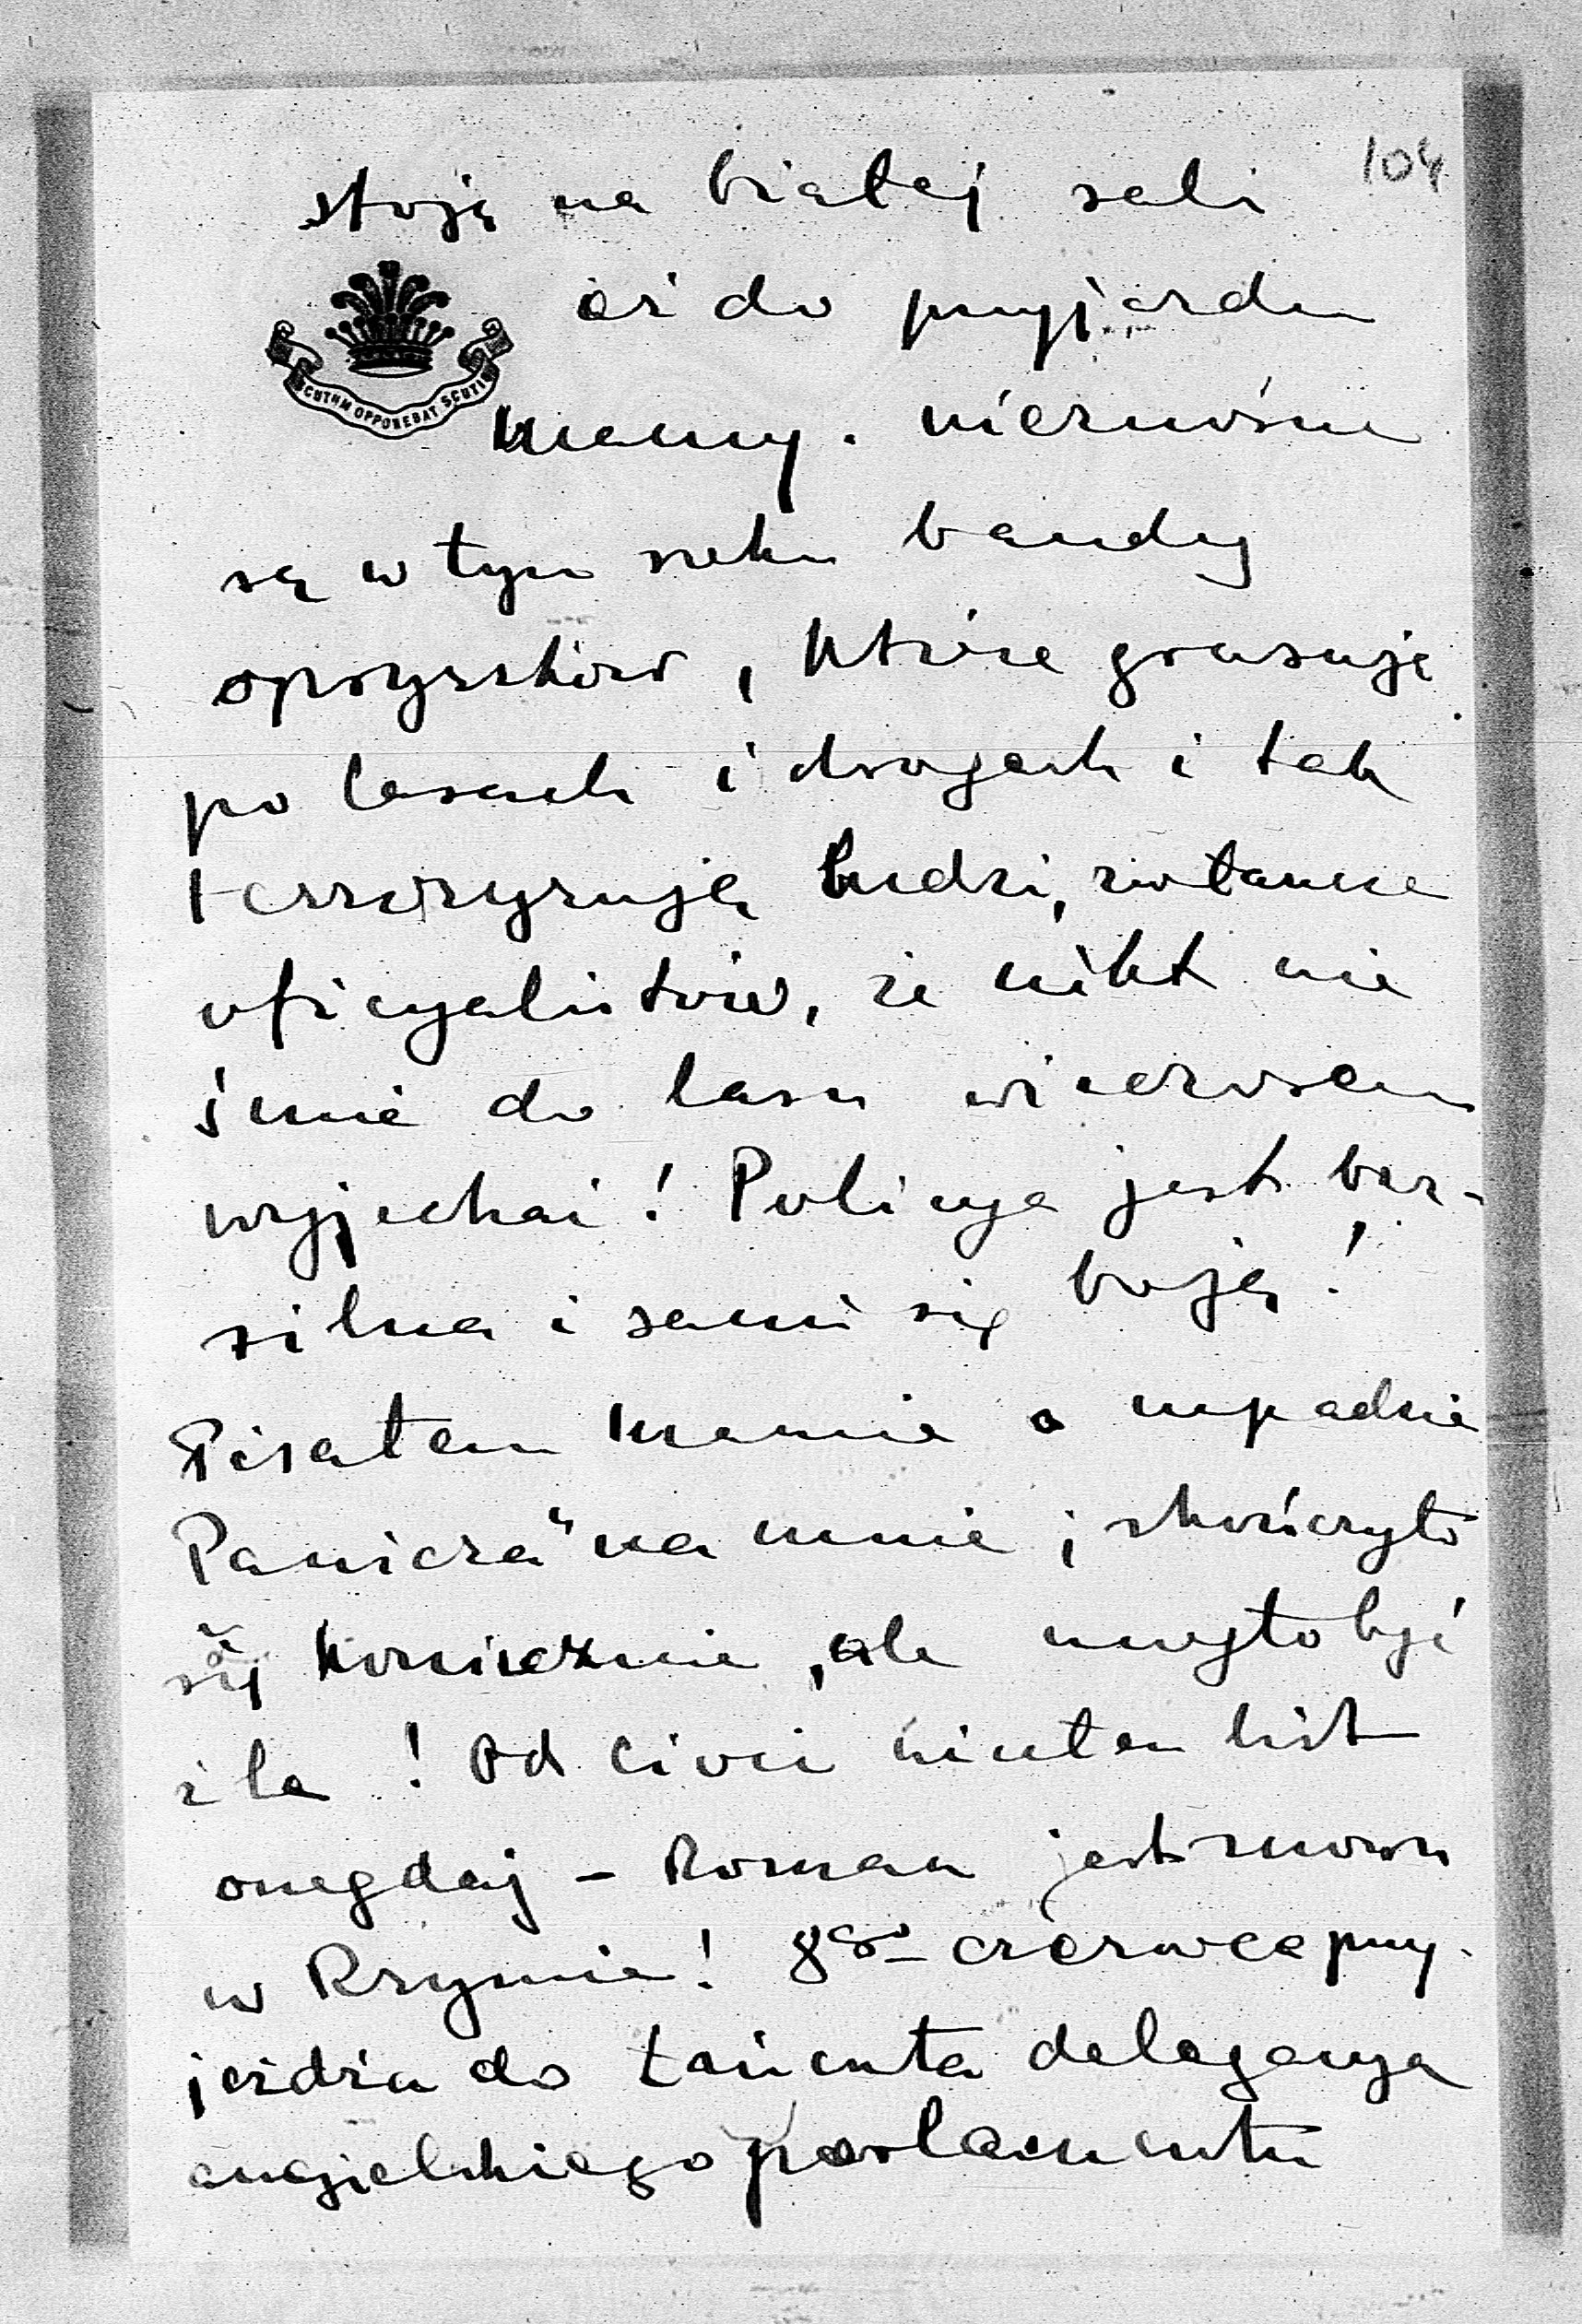 104
stoją na białej sali
aż do przyjazdu
SCUTUM OPPONEBAT SCUTIS
Mamy. nieznośne
są w tym roku bandy
opryszków, które grasują
po lasach i drogach i tak
terroryzują ludzi, zwłaszcza
oficyalistów, że nikt nie
śmie do lasu wieczorem
wyjechać! Policya jest bez-
silna i sami się boją!
Pisałem Mamie o napadzie
Panicza" na mnie; skończyło
się komicznie, ale mogło być
źle! Od Cioci miałem list
onegdaj – Roman jest znowu
w Rzymie! 8go czerwca przy-
jeżdża do Łańcuta delegacya
angielskiego parlamentu